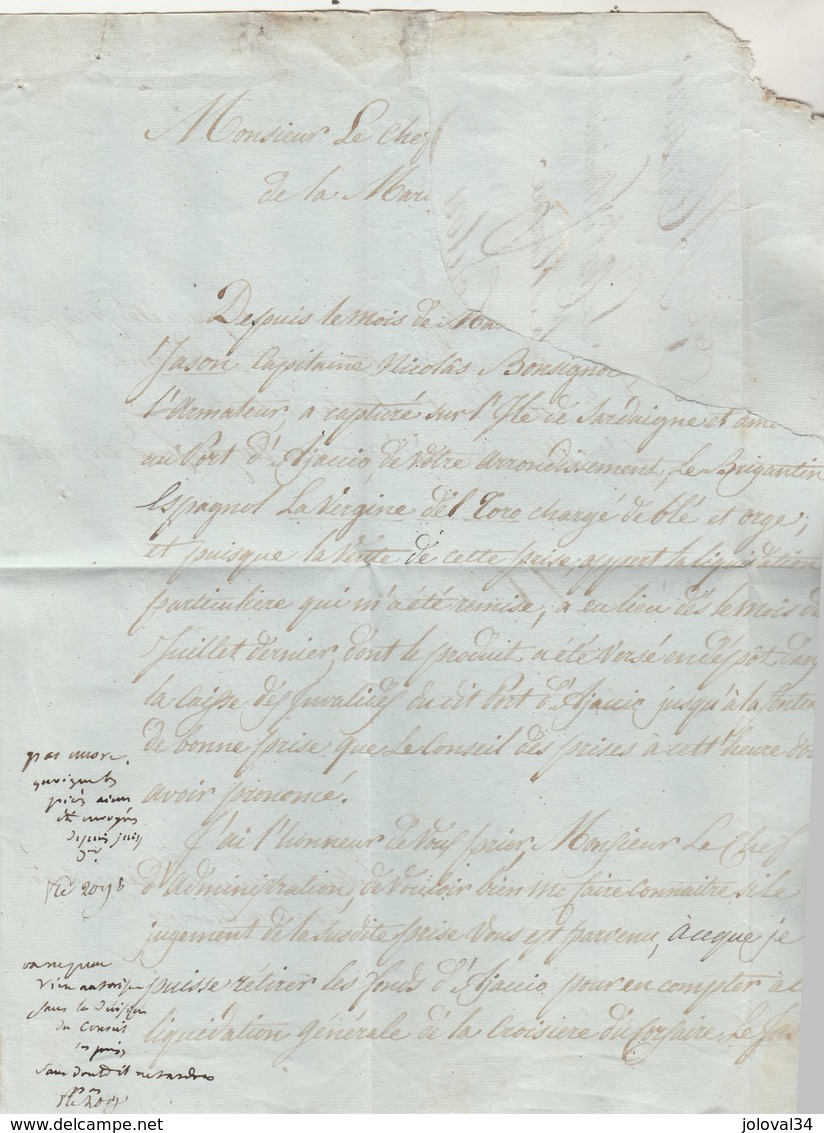 Monsieur Le Chef
de la Mari
Depuis le mois de Ma
Jason Capitaine Nicolâs Bonsigno
l'Armateur, a capturé sur l'Ile de Sardaigne et ame
au Port d'Ajaccio de vôtre arrondissement, Le Brigantin
Espagnol La Vergine del Toro chargé de blé et orge;
et puisque la vente de cette prise, appert la liquidation
particuliere qui m'a été remise, a eu lieu dés le mois de
Juillet dernier, dont le produit a été versé en depôt dans
la Caisse des Invalides du dit Port d'Ajaccio jusqu'à la Senten
de bonne prise que Le Conseil des prises à cett'heure doi
avoir prononcé.
J'ai l'honneur de vous prier, Monsieur Le Chef
d'Administration, de vouloir bien me faire connaitre si le
jugement de la susdite prise vous est parvenu, à ce que je
puisse rétirer les fonds d'Ajaccio pour en compter à l
liquidation générale de la Croisiere du Corsaire Le Ja
pas encore.
depuis juin
sans la décision
du Conseil
des prises
joloval34